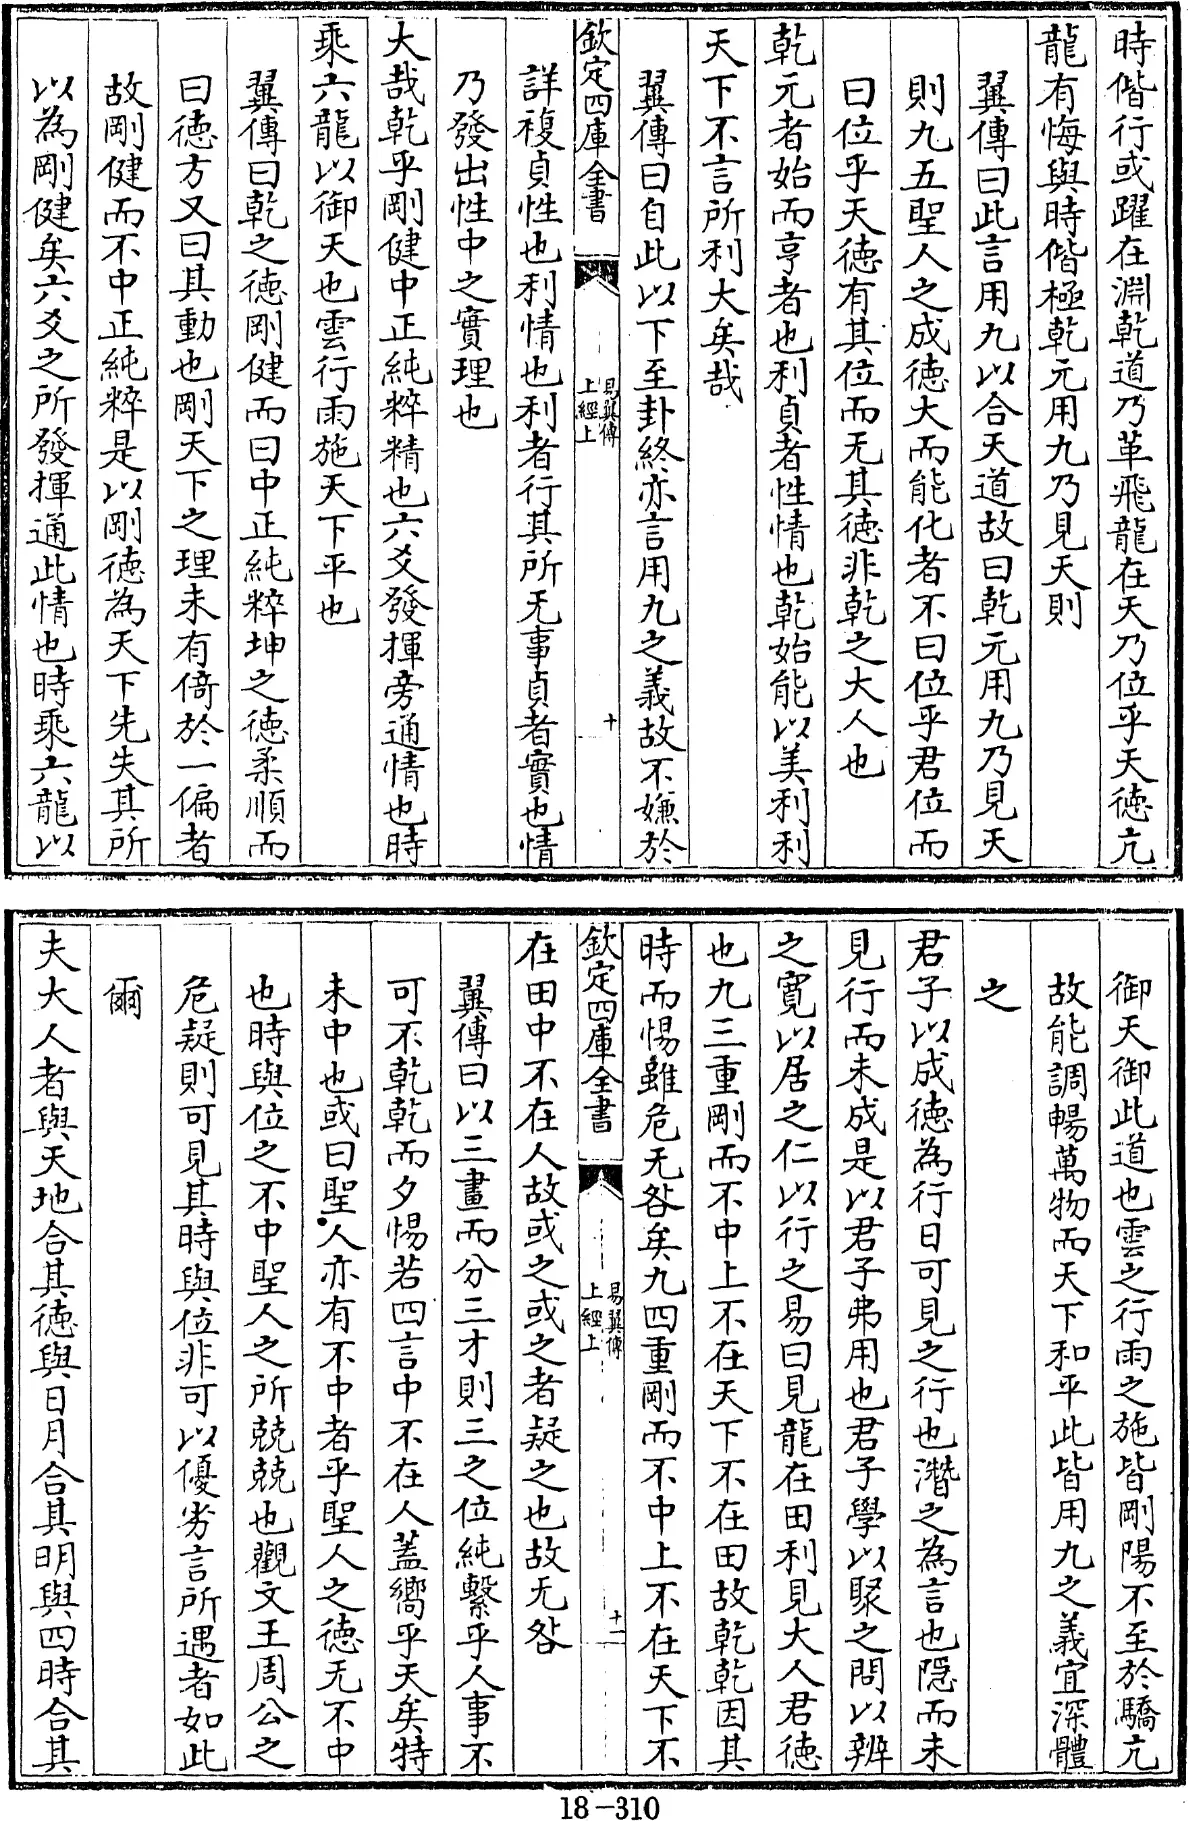 時偕行或躍在淵乾道乃革飛龍在天乃位乎天德亢
龍有悔與時偕極乾元用九乃見天則
翼傳曰此言用九以合天道故曰乾元用九乃見天
則九五聖人之成德大而能化者不曰位乎君位而
曰位乎天德有其位而无其德非乾之大人也
乾元者始而亨者也利貞者性情也乾始能以美利利
天下不言所利大矣哉
翼傳曰自此以下至卦終亦言用九之義故不嫌於
欽定四庫全書
易翼傳
上經上
十
詳複貞性也利情也利者行其所无事貞者實也情
乃發出性中之實理也
大哉乾乎剛健中正純粹精也六爻發揮旁通情也時
乘六龍以御天也雲行雨施天下平也
翼傳曰乾之德剛健而曰中正純粹坤之德柔順而
曰德方又曰其動也剛天下之理未有倚於一偏者
故剛健而不中正純粹是以剛德為天下先失其所
以為剛健矣六爻之所發揮通此情也時乘六龍以
御天御此道也雲之行雨之施皆剛陽不至於驕亢
故能調暢萬物而天下和平此皆用九之義宜深體
之
君子以成德為行日可見之行也潛之為言也隱而未
見行而未成是以君子弗用也君子學以聚之問以辨
之寬以居之仁以行之易曰見龍在田利見大人君德
也九三重剛而不中上不在天下不在田故乾乾因其
時而惕雖危无咎矣九四重剛而不中上不在天下不
欽定四庫全書
易翼傳
上經上
十一
在田中不在人故或之或之者疑之也故无咎
翼傳曰以三畫而分三才則三之位純繫乎人事不
可不乾乾而夕惕若四言中不在人蓋嚮乎天矣特
未中也或曰聖人亦有不中者乎聖人之德无不中
也時與位之不中聖人之所兢兢也觀文王周公之
危疑則可見其時與位非可以優劣言所遇者如此
爾
夫大人者與天地合其德與日月合其明與四時合其
18-310